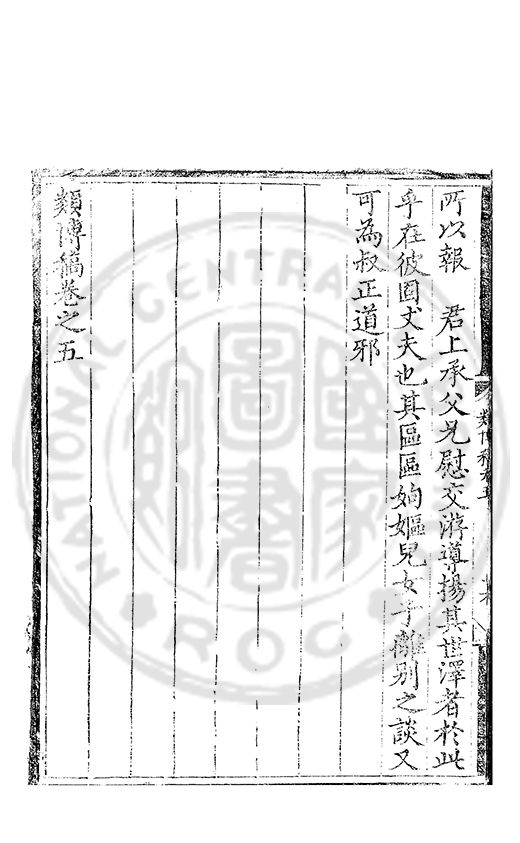 所以報 君上承父兄慰交游導揚其世澤者於此
乎在彼固丈夫也其區區姁嫗兒女子離別之談又
可為叔正道邪
類博稿卷之五
類博稿卷五
NATIONAL CENTRAL LIBRARY
R.O.C.
國家圖書館